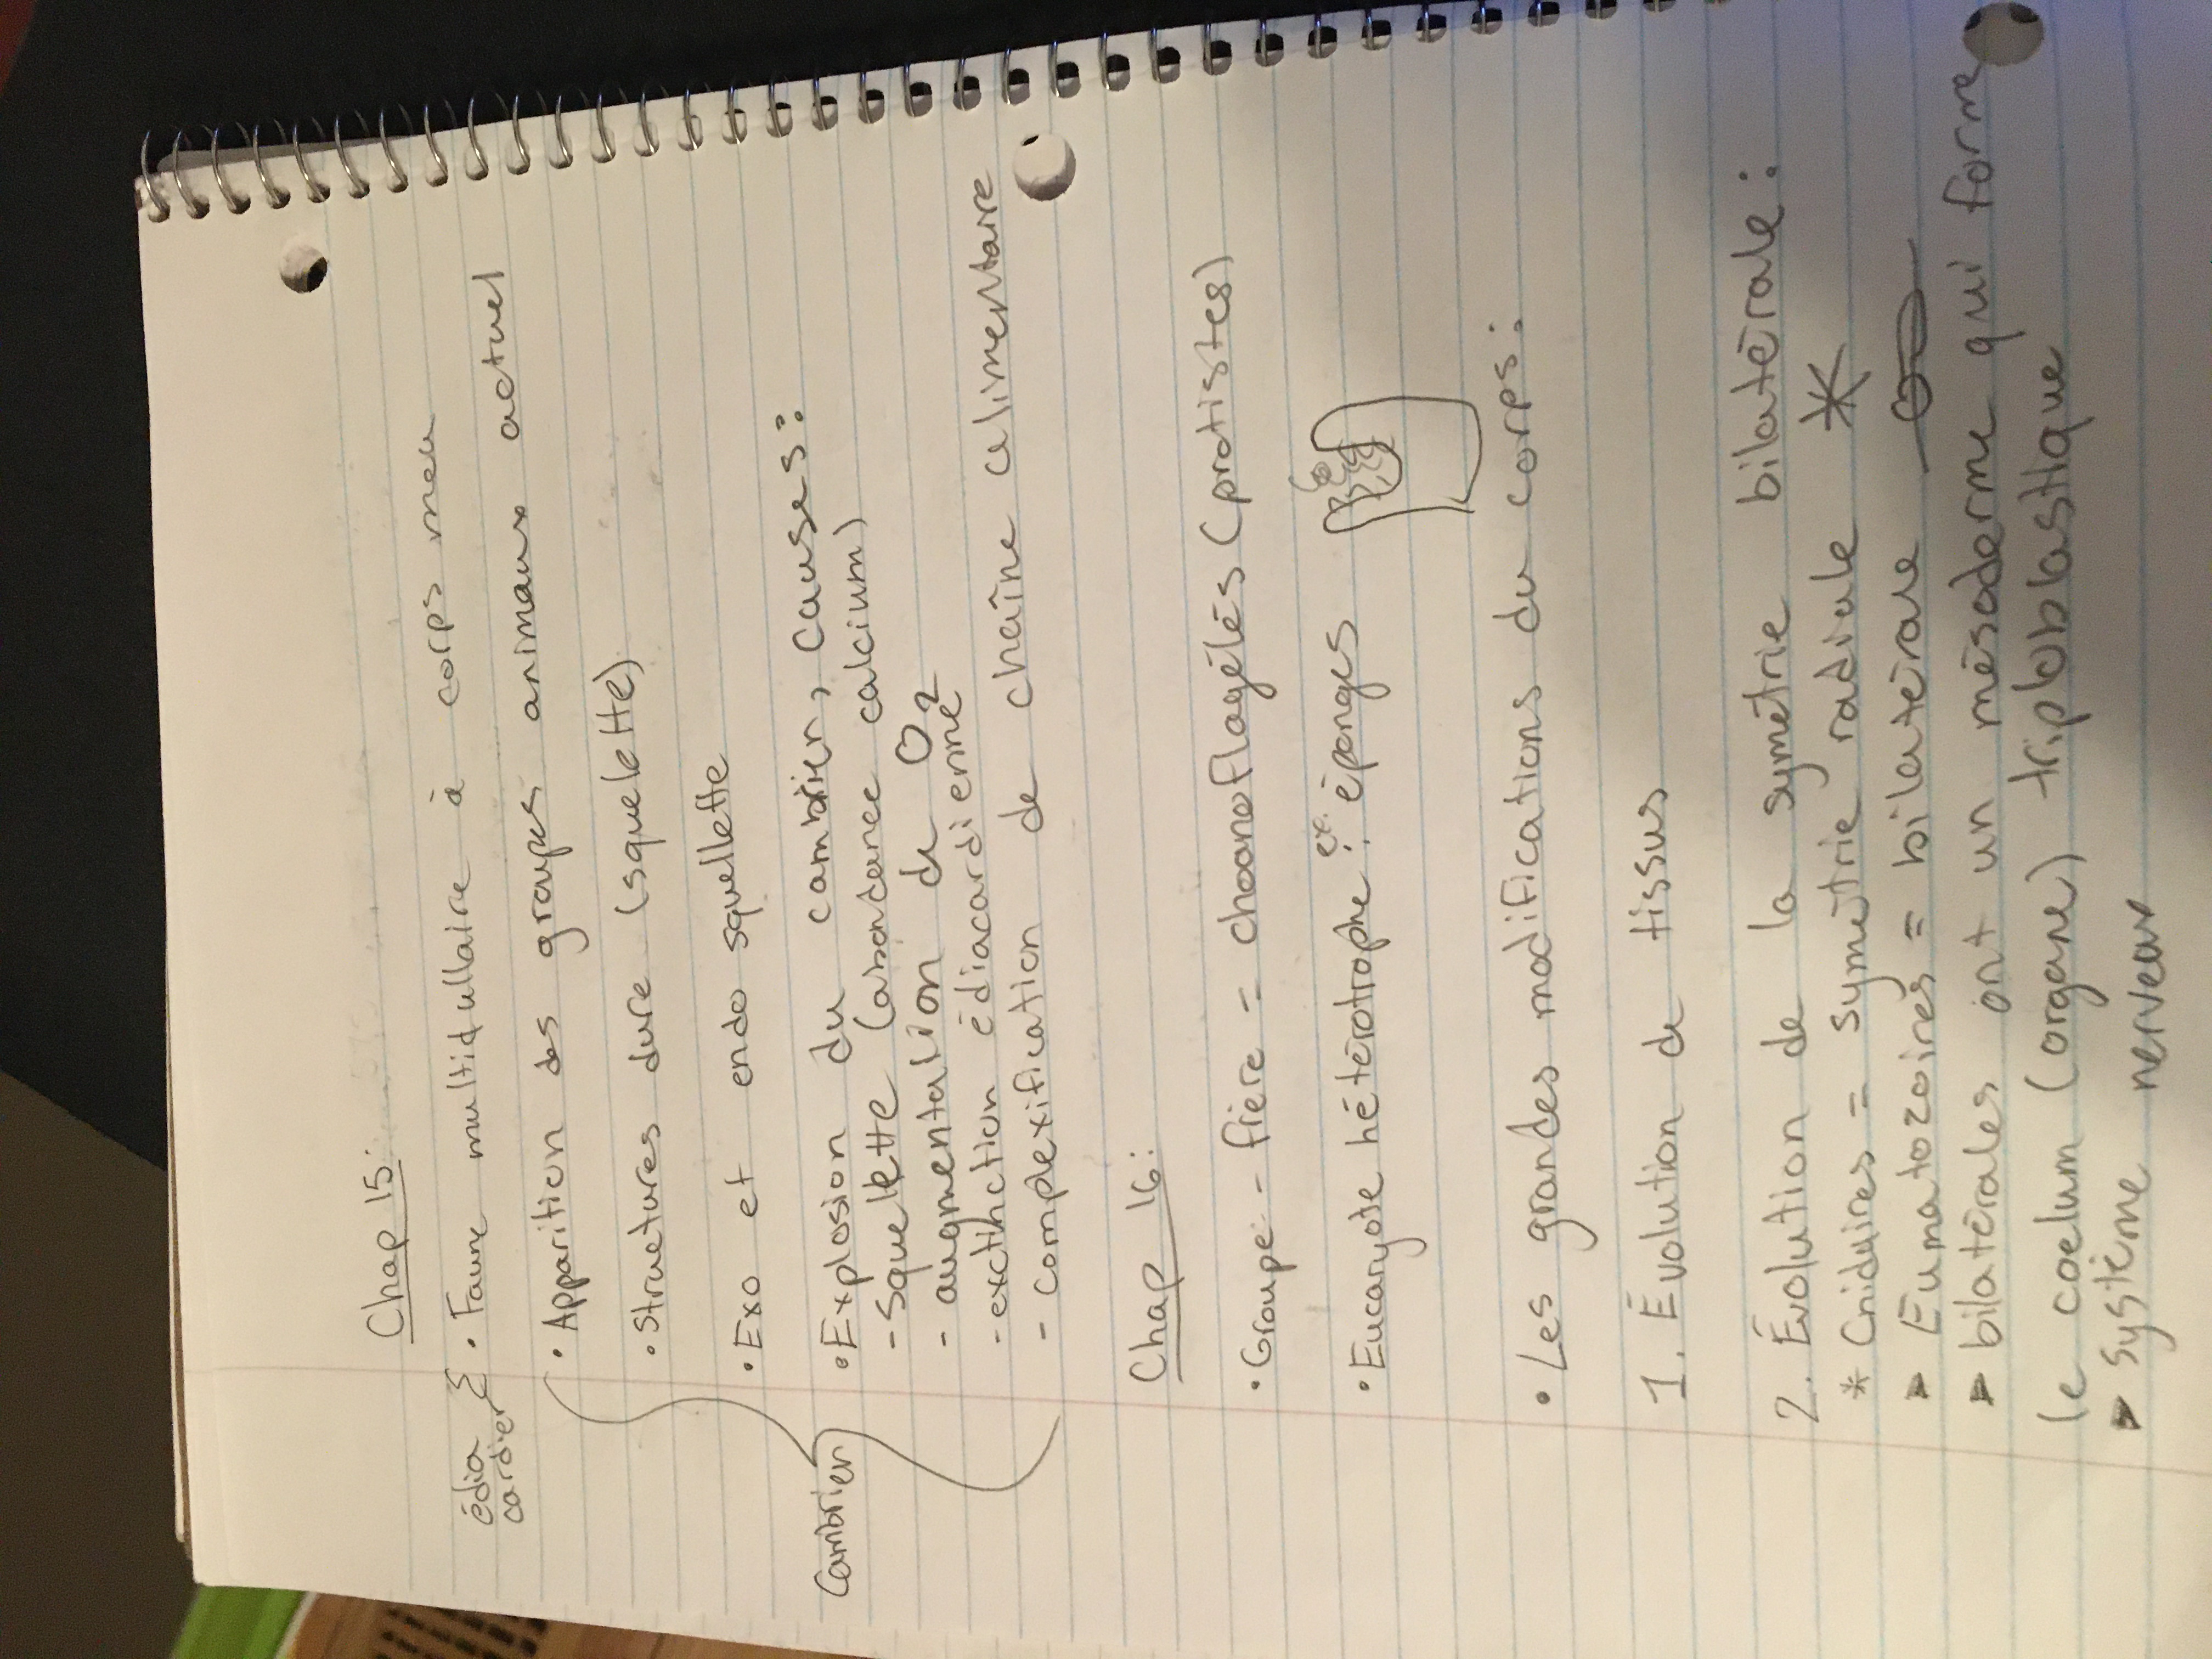 Chap 15:
édia
cardier
• Faune multidullaire à corps mou
• Apparition des groupes animaux actuel
• Structures dure (squelette)
• Exo et endo squellette
Cambrien
• Explosion du cambrien, causes:
- squelette (abondance calcium)
- augmentation de O2
- excthnction édiacardienne
- complexification de chaîne alimentaire
Chap 16:
• Groupe - fiere = choanoflagélés (protistes)
• Eucaryote hétérotrophe: ex. éponges
• Les grandes modifications du corps:
1. Évolution de tissus
2. Évolution de la symétrie bilatérale:
* Cnidaires = symétrie radiale *
► Eumatozoires = bilatérale
► bilatérales ont un mésoderme qui forme
le coelum (organe) triploblastique
► système nerveux